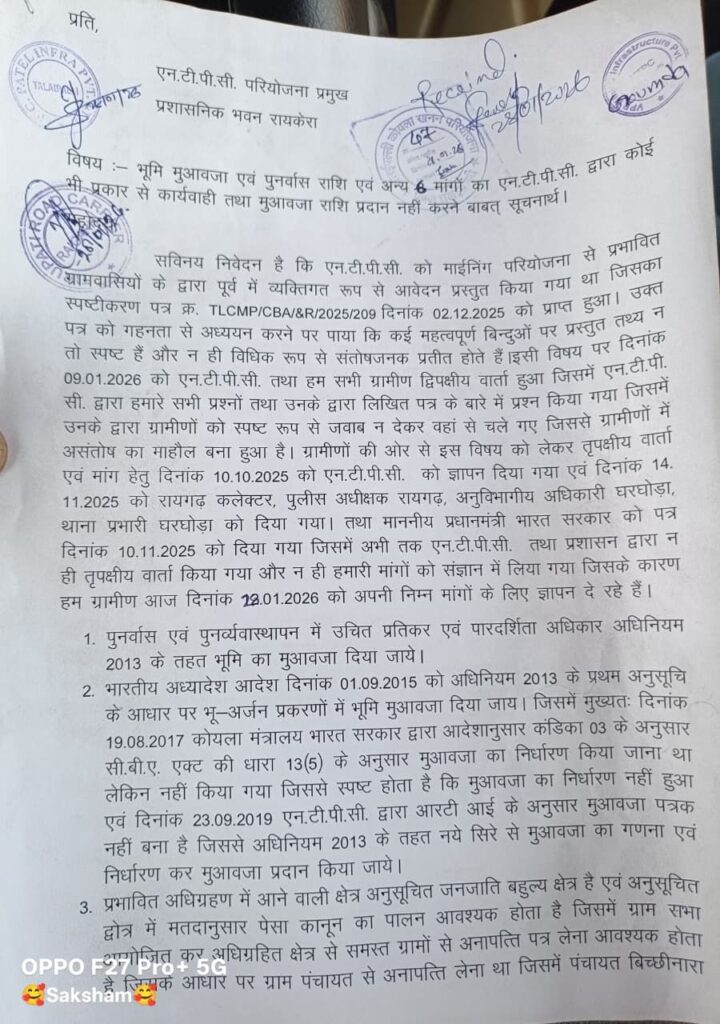 प्रति,
एन.टी.पी.सी. परियोजना प्रमुख
प्रशासनिक भवन रायकेरा
Received
28/01/2026
विषय :– भूमि मुआवजा एवं पुनर्वास राशि एवं अन्य 6 मांगों का एन.टी.पी.सी. द्वारा कोई
भी प्रकार से कार्यवाही तथा मुआवजा राशि प्रदान नहीं करने बाबत् सूचनार्थ।
सविनय निवेदन है कि एन.टी.पी.सी. को माईनिंग परियोजना से प्रभावित
ग्रामवासियों के द्वारा पूर्व में व्यक्तिगत रूप से आवेदन प्रस्तुत किया गया था जिसका
स्पष्टीकरण पत्र क्र. TLCMP/CBA/&R/2025/209 दिनांक 02.12.2025 को प्राप्त हुआ। उक्त
पत्र को गहनता से अध्ययन करने पर पाया कि कई महत्वपूर्ण बिन्दुओं पर प्रस्तुत तथ्य न
तो स्पष्ट हैं और न ही विधिक रूप से संतोषजनक प्रतीत होते हैं।इसी विषय पर दिनांक
09.01.2026 को एन.टी.पी.सी. तथा हम सभी ग्रामीण द्विपक्षीय वार्ता हुआ जिसमें एन.टी.पी.
सी. द्वारा हमारे सभी प्रश्नों तथा उनके द्वारा लिखित पत्र के बारे में प्रश्न किया गया जिसमें
उनके द्वारा ग्रामीणों को स्पष्ट रूप से जवाब न देकर वहां से चले गए जिससे ग्रामीणों में
असंतोष का माहौल बना हुआ है। ग्रामीणों की ओर से इस विषय को लेकर तृपक्षीय वार्ता
एवं मांग हेतु दिनांक 10.10.2025 को एन.टी.पी.सी. को ज्ञापन दिया गया एवं दिनांक 14.
11.2025 को रायगढ़ कलेक्टर, पुलीस अधीक्षक रायगढ़, अनुविभागीय अधिकारी घरघोड़ा,
थाना प्रभारी घरघोड़ा को दिया गया। तथा माननीय प्रधानमंत्री भारत सरकार को पत्र
दिनांक 10.11.2025 को दिया गया जिसमें अभी तक एन.टी.पी.सी. तथा प्रशासन द्वारा न
ही तृपक्षीय वार्ता किया गया और न ही हमारी मांगों को संज्ञान में लिया गया जिसके कारण
हम ग्रामीण आज दिनांक 28.01.2026 को अपनी निम्न मांगों के लिए ज्ञापन दे रहे हैं।
1. पुनर्वास एवं पुनर्व्यवास्थापन में उचित प्रतिकर एवं पारदर्शिता अधिकार अधिनियम
2013 के तहत भूमि का मुआवजा दिया जाये।
2. भारतीय अध्यादेश आदेश दिनांक 01.09.2015 को अधिनियम 2013 के प्रथम अनुसूचि
के आधार पर भू–अर्जन प्रकरणों में भूमि मुआवजा दिया जाय। जिसमें मुख्यतः दिनांक
19.08.2017 कोयला मंत्रालय भारत सरकार द्वारा आदेशानुसार कंडिका 03 के अनुसार
सी.बी.ए. एक्ट की धारा 13(5) के अनुसार मुआवजा का निर्धारण किया जाना था
लेकिन नहीं किया गया जिससे स्पष्ट होता है कि मुआवजा का निर्धारण नहीं हुआ
एवं दिनांक 23.09.2019 एन.टी.पी.सी. द्वारा आरटी आई के अनुसार मुआवजा पत्रक
नहीं बना है जिससे अधिनियम 2013 के तहत नये सिरे से मुआवजा का गणना एवं
निर्धारण कर मुआवजा प्रदान किया जाये।
3. प्रभावित अधिग्रहण में आने वाली क्षेत्र अनुसूचित जनजाति बहुल्य क्षेत्र है एवं अनुसूचित
द्वोत्र में मतदानुसार पेसा कानून का पालन आवश्यक होता है जिसमें ग्राम सभा
आयोजित कर अधिग्रहित क्षेत्र से समस्त ग्रामों से अनापत्ति पत्र लेना आवश्यक होता
है जिसके आधार पर ग्राम पंचायत से अनापत्ति लेना था जिसमें पंचायत बिच्छीनारा
OPPO F27 Pro+ 5G
🥰Saksham🥰